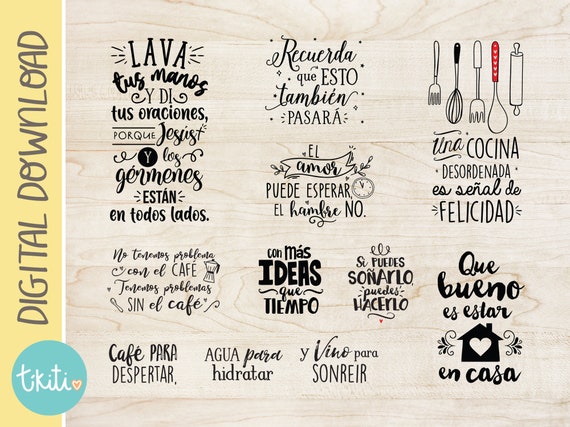 DIGITAL DOWNLOAD
tkiti
LAVA
tus manos
Y DI
tus oraciones,
PORQUE Jesús
Y los
gérmenes
ESTÁN
en todos lados.
Recuerda
que ESTO
también
PASARÁ
EL
amor
PUEDE ESPERAR,
EL hambre NO.
Una COCINA
DESORDENADA
es señal de
FELICIDAD
No tenemos problema
con el CAFÉ
Tenemos problemas
SIN el café
con más
IDEAS
que
TIEMPO
SI PUEDES
SOÑARLO,
puedes
HACERLO
Que
bueno
es estar
en casa
Café PARA
DESPERTAR,
AGUA para
hidratar
y Vino para
SONREIR